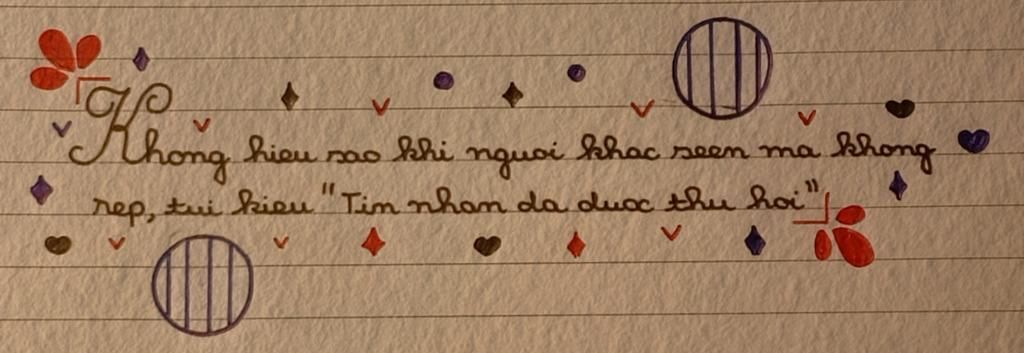 Khong hieu sao khi nguoi khac seen ma khong
rep, tui kieu "Tim nhan da duoc thu hoi"